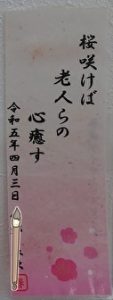 桜咲けば
老人らの
心癒す
令和五年四月三日